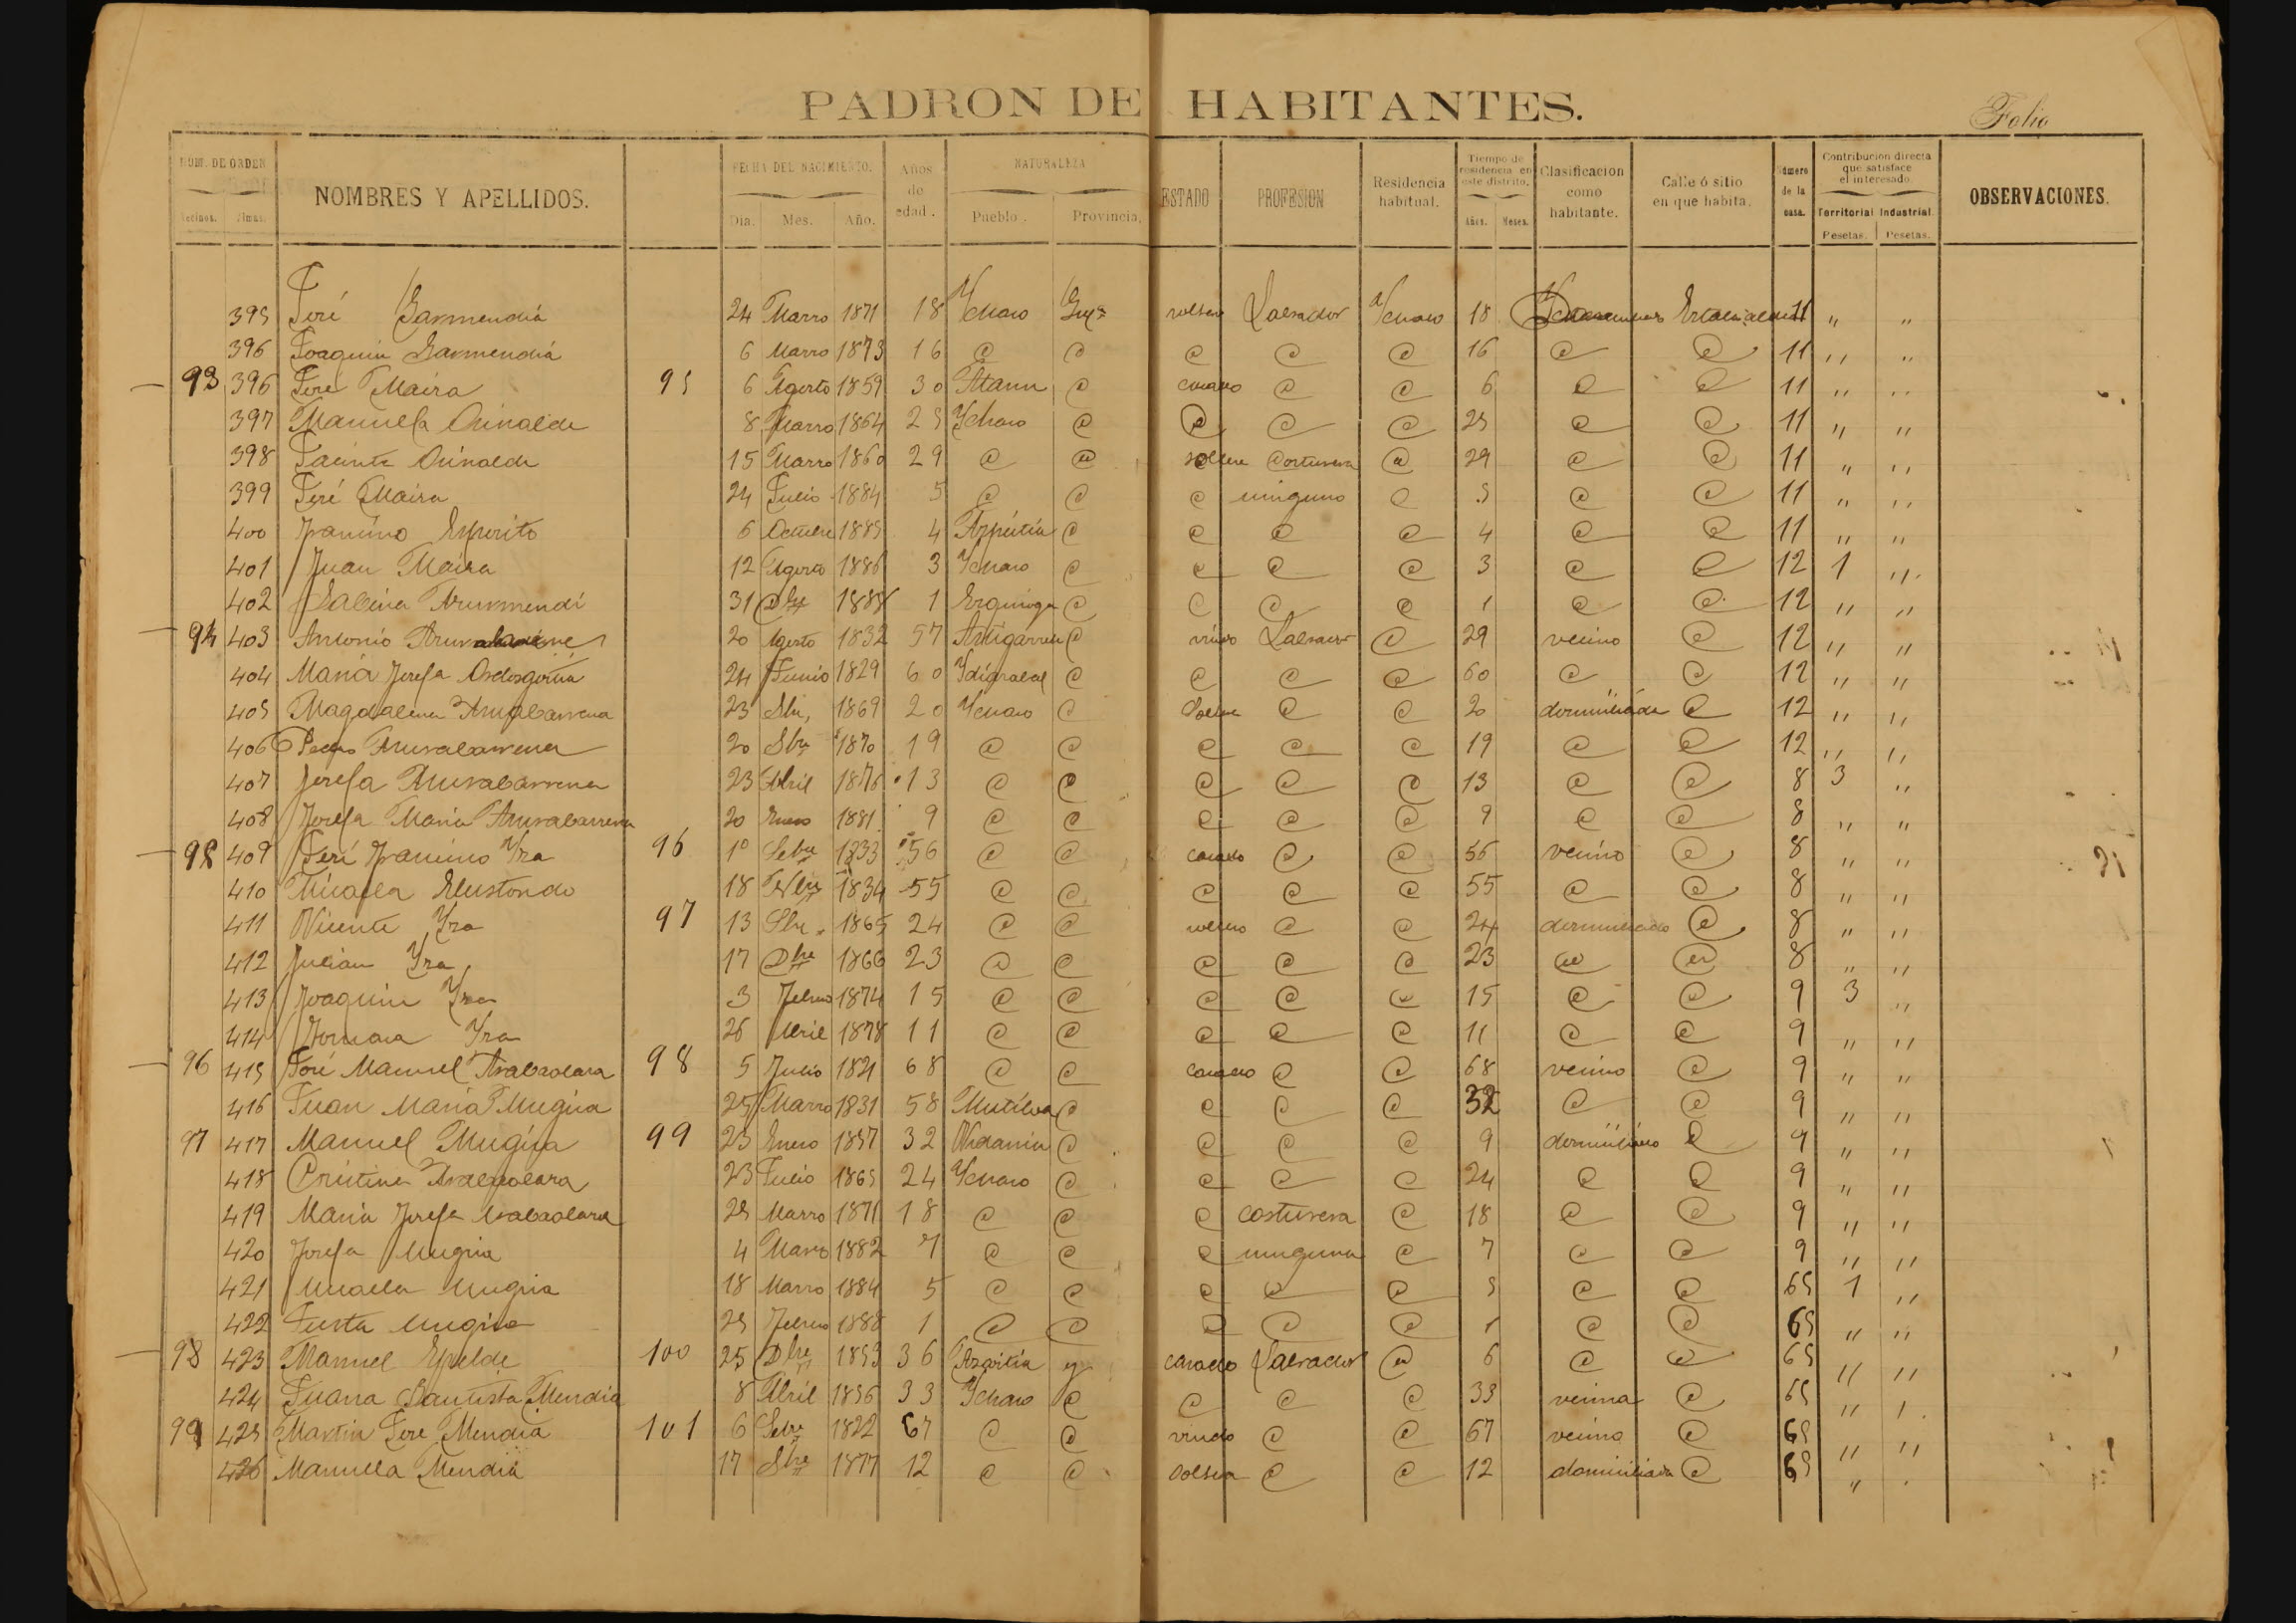 PADRON DE HABITANTES.
Folio
NUM. DE ORDEN NOMBRES Y APELLIDOS. FECHA DEL NACIMIENTO. Años de edad. NATURALEZA ESTADO PROFESION Residencia habitual. Tiempo de residencia en este distrito. Clasificacion como habitante. Calle ó sitio en que habita. Número de la casa. Contribucion directa que satisface el interesado. OBSERVACIONES.
Vecinos. Almas. Dia. Mes. Año. Pueblo. Provincia. Años. Meses. Territorial Industrial
Pesetas. Pesetas.
395 José Garmendia 24 Marzo 1871 18 Ychaso soltero Labrador Ychaso 18 11 " "
396 Joaquin Garmendia 6 Marzo 1873 16 @ @ @ @ @ 16 @ @ 11 " "
93 396 José Maiza 95 6 Agosto 1859 30 Ataun @ casado @ @ 6 @ @ 11 " "
397 Manuela 8 Marzo 1864 25 Ychaso @ @ @ @ 25 @ @ 11 " "
398 15 Marzo 1860 29 @ @ soltera Costurera @ 29 @ @ 11 " "
399 José Maiza 24 Julio 1884 5 @ @ @ ninguno @ 5 @ @ 11 " "
400 Francisco Esposito 6 Octubre 1885 4 Azpeitia @ @ @ @ 4 @ @ 11 " "
401 Juan Maiza 12 Agosto 1886 3 Ychaso @ @ @ @ 3 @ @ 12 1 "
402 Sabina 31 Dbre 1888 1 Ezquioga @ @ @ @ 1 @ @ 12 " "
94 403 Antonio 20 Agosto 1832 57 Astigarreta @ viudo Labrador @ 29 vecino @ 12 " "
404 Maria Josefa 24 Junio 1829 60 Ydiazabal @ @ @ @ 60 @ @ 12 " "
405 Magdalena Arruabarrena 23 1869 20 Ychaso @ Soltera @ @ 20 domiciliada @ 12 " "
406 Pedro Arruabarrena 20 Sbre 1870 19 @ @ @ @ @ 19 @ @ 12 " "
407 Josefa Arruabarrena 23 Abril 1876 13 @ @ @ @ @ 13 @ @ 8 3 "
408 Josefa Maria Arruabarrena 20 Enero 1881 9 @ @ @ @ @ 9 @ @ 8 " "
409 José Francisco Yza 96 1º Sebre 1833 56 @ @ casado @ @ 56 vecino @ 8 " "
410 Micaela Elustondo 18 1834 55 @ @ @ @ @ 55 @ @ 8 " "
411 Vicente Yza 97 13 1865 24 @ @ soltero @ @ 24 domiciliado @ 8 " "
412 Julian Yza 17 Dbre 1866 23 @ @ @ @ @ 23 @ @ 8 " "
413 Joaquin Yza 3 Febrero 1874 15 @ @ @ @ @ 15 @ @ 9 3 "
414 Yza 26 Abril 1878 11 @ @ @ @ @ 11 @ @ 9 " "
96 415 José Manuel Arabaolaza 98 5 Julio 1821 68 @ @ casado @ @ 68 vecino @ 9 " "
416 Juan Maria Mugica 25 Marzo 1831 58 Mutiloa @ @ @ @ 32 @ @ 9 " "
97 417 Manuel Mugica 99 23 Enero 1857 32 Vidania @ @ @ @ 9 domiciliado @ 9 " "
418 Cristina Arabaolaza 23 Julio 1865 24 Ychaso @ @ @ @ 24 @ @ 9 " "
419 Maria Josefa Arabaolaza 25 Marzo 1871 18 @ @ @ costurera @ 18 @ @ 9 " "
420 Josefa Mugica 4 Marzo 1882 7 @ @ @ ninguna @ 7 @ @ 9 " "
421 Micaela Mugica 18 Marzo 1884 5 @ @ @ @ @ 5 @ @ 65 1 "
422 Justa Mugica 25 Febrero 1888 1 @ @ @ @ @ 1 @ @ 65 " "
98 423 Manuel Epelde 100 25 Dbre 1853 36 Azcoitia casado Labrador @ 6 @ @ 65 " "
424 Juana Bautista Mendia 8 Abril 1856 33 Ychaso @ @ @ @ 33 vecina @ 65 "
99 425 Martin José Mendia 101 6 Sebre 1822 67 @ @ viudo @ @ 67 vecino @ 65 " "
426 Manuela Mendia 17 Sbre 1877 12 @ @ Soltera @ @ 12 domiciliada @ 65 "